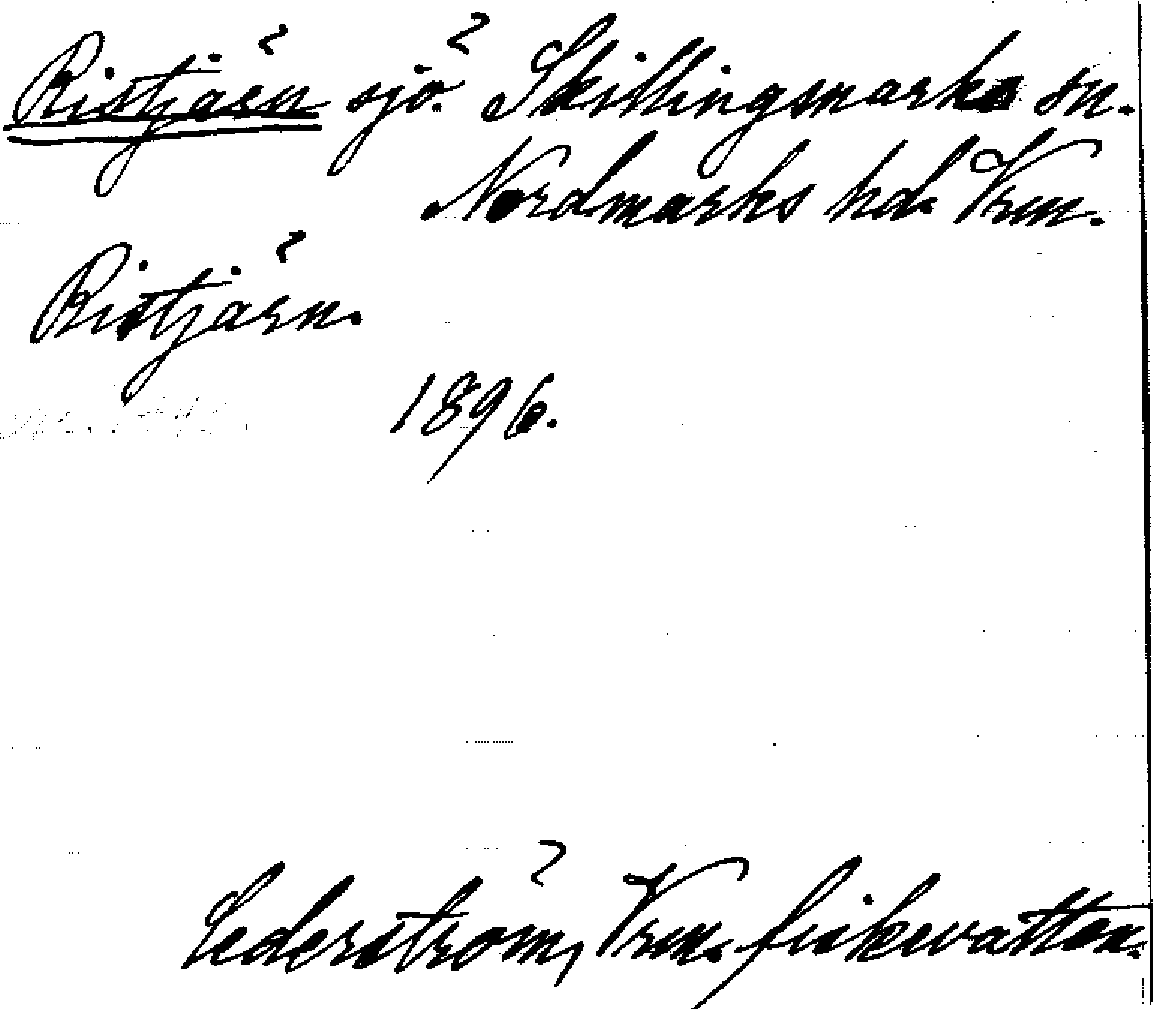 Ristjärn sjö. Skillingmarks sn.
Nordmarks hd. Vrm.
Ristjärn.
1896.
Cederström, Vrm. fiskevatten.